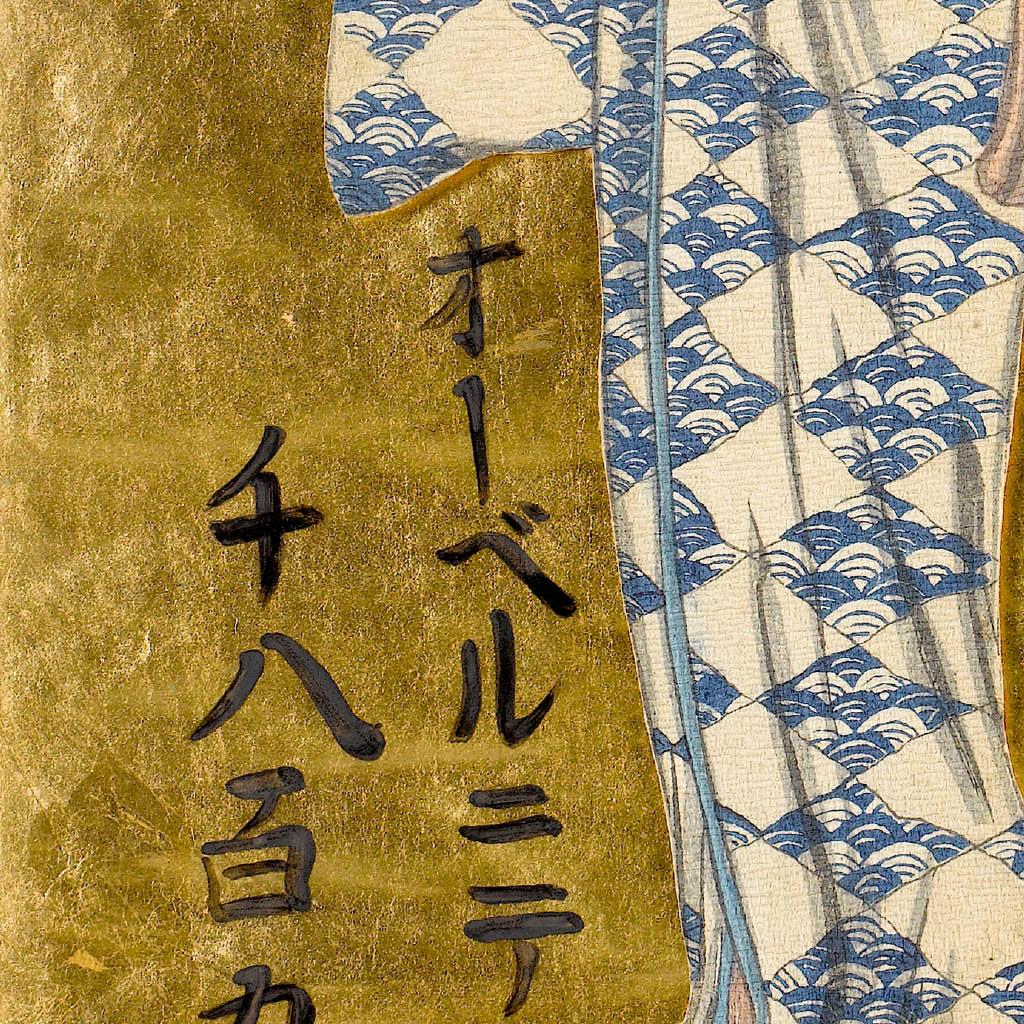 オーベルニテ
千八百九